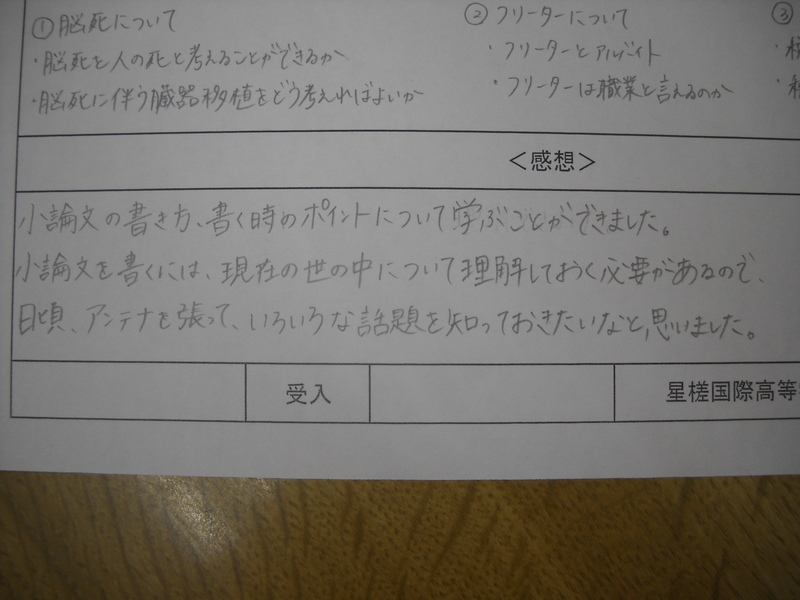 ①脳死について
・脳死を人の死と考えることができるか
・脳死に伴う臓器移植をどう考えればよいか
②フリーターについて
・フリーターとアルバイト
・フリーターは職業と言えるのか
③
<感想>
小論文の書き方、書く時のポイントについて学ぶことができました。
小論文を書くには、現在の世の中について理解しておく必要があるので、
日頃、アンテナを張って、いろいろな話題を知っておきたいなと思いました。
受入
星槎国際高等